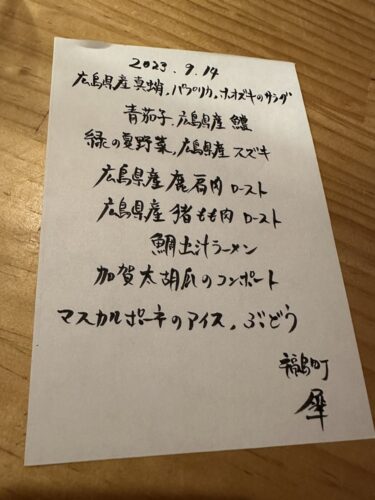 2023.9.14
広島県産真蛸、パプリカ、ホオズキのサラダ
青茄子、広島県産 鱧
緑の夏野菜、広島県産 スズキ
広島県産 鹿肩肉 ロースト
広島県産 猪もも肉 ロースト
鯛出汁ラーメン
加賀太胡瓜のコンポート
マスカルポーネのアイス、ぶどう
福島町
犀